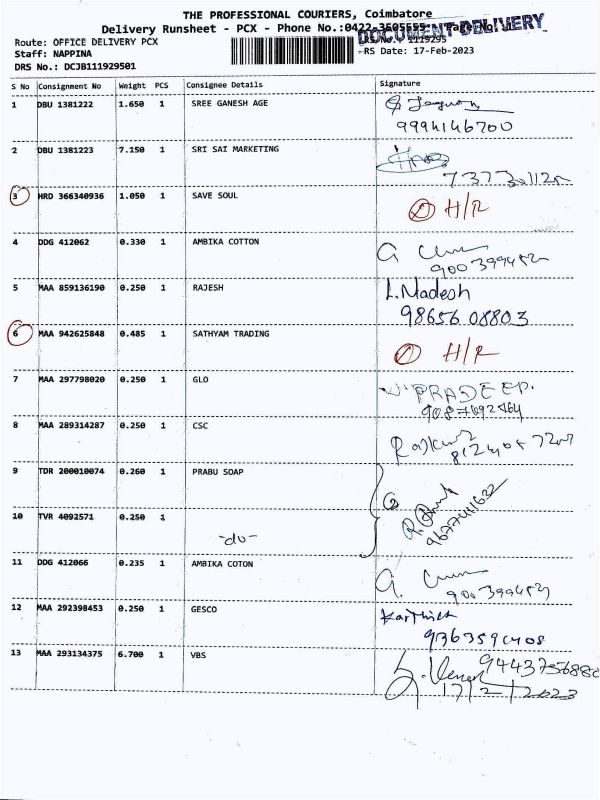 THE PROFESSIONAL COURIERS, Coimbatore
Delivery Runsheet - PCX - Phone No.:0422-3505555- Page No
DOCUMENT DELIVERY
Route: OFFICE DELIVERY PCX
RS No.: 1119295
Staff: NAPPINA
RS Date: 17-Feb-2023
DRS No.: DCJB111929501
S No Consignment No Weight PCS Consignee Details Signature
1 DBU 1381222 1.650 1 SREE GANESH AGE
9994146700
2 DBU 1381223 7.150 1 SRI SAI MARKETING
3 HRD 366340936 1.050 1 SAVE SOUL
H/R
4 DDG 412062 0.330 1 AMBIKA COTTON
5 MAA 859136190 0.250 1 RAJESH L.Madesh
98656 08803
6 MAA 942625848 0.485 1 SATHYAM TRADING
H/R
7 MAA 297798020 0.250 1 GLO PRADEEP.
9087692464
8 MAA 289314287 0.250 1 CSC
9 TDR 200010074 0.260 1 PRABU SOAP
9677441632
10 TVR 4092571 0.250 1
-do-
11 DDG 412066 0.235 1 AMBIKA COTON
12 MAA 292398453 0.250 1 GESCO Karthick
13 MAA 293134375 6.700 1 VBS
9443756880
17/2/2023